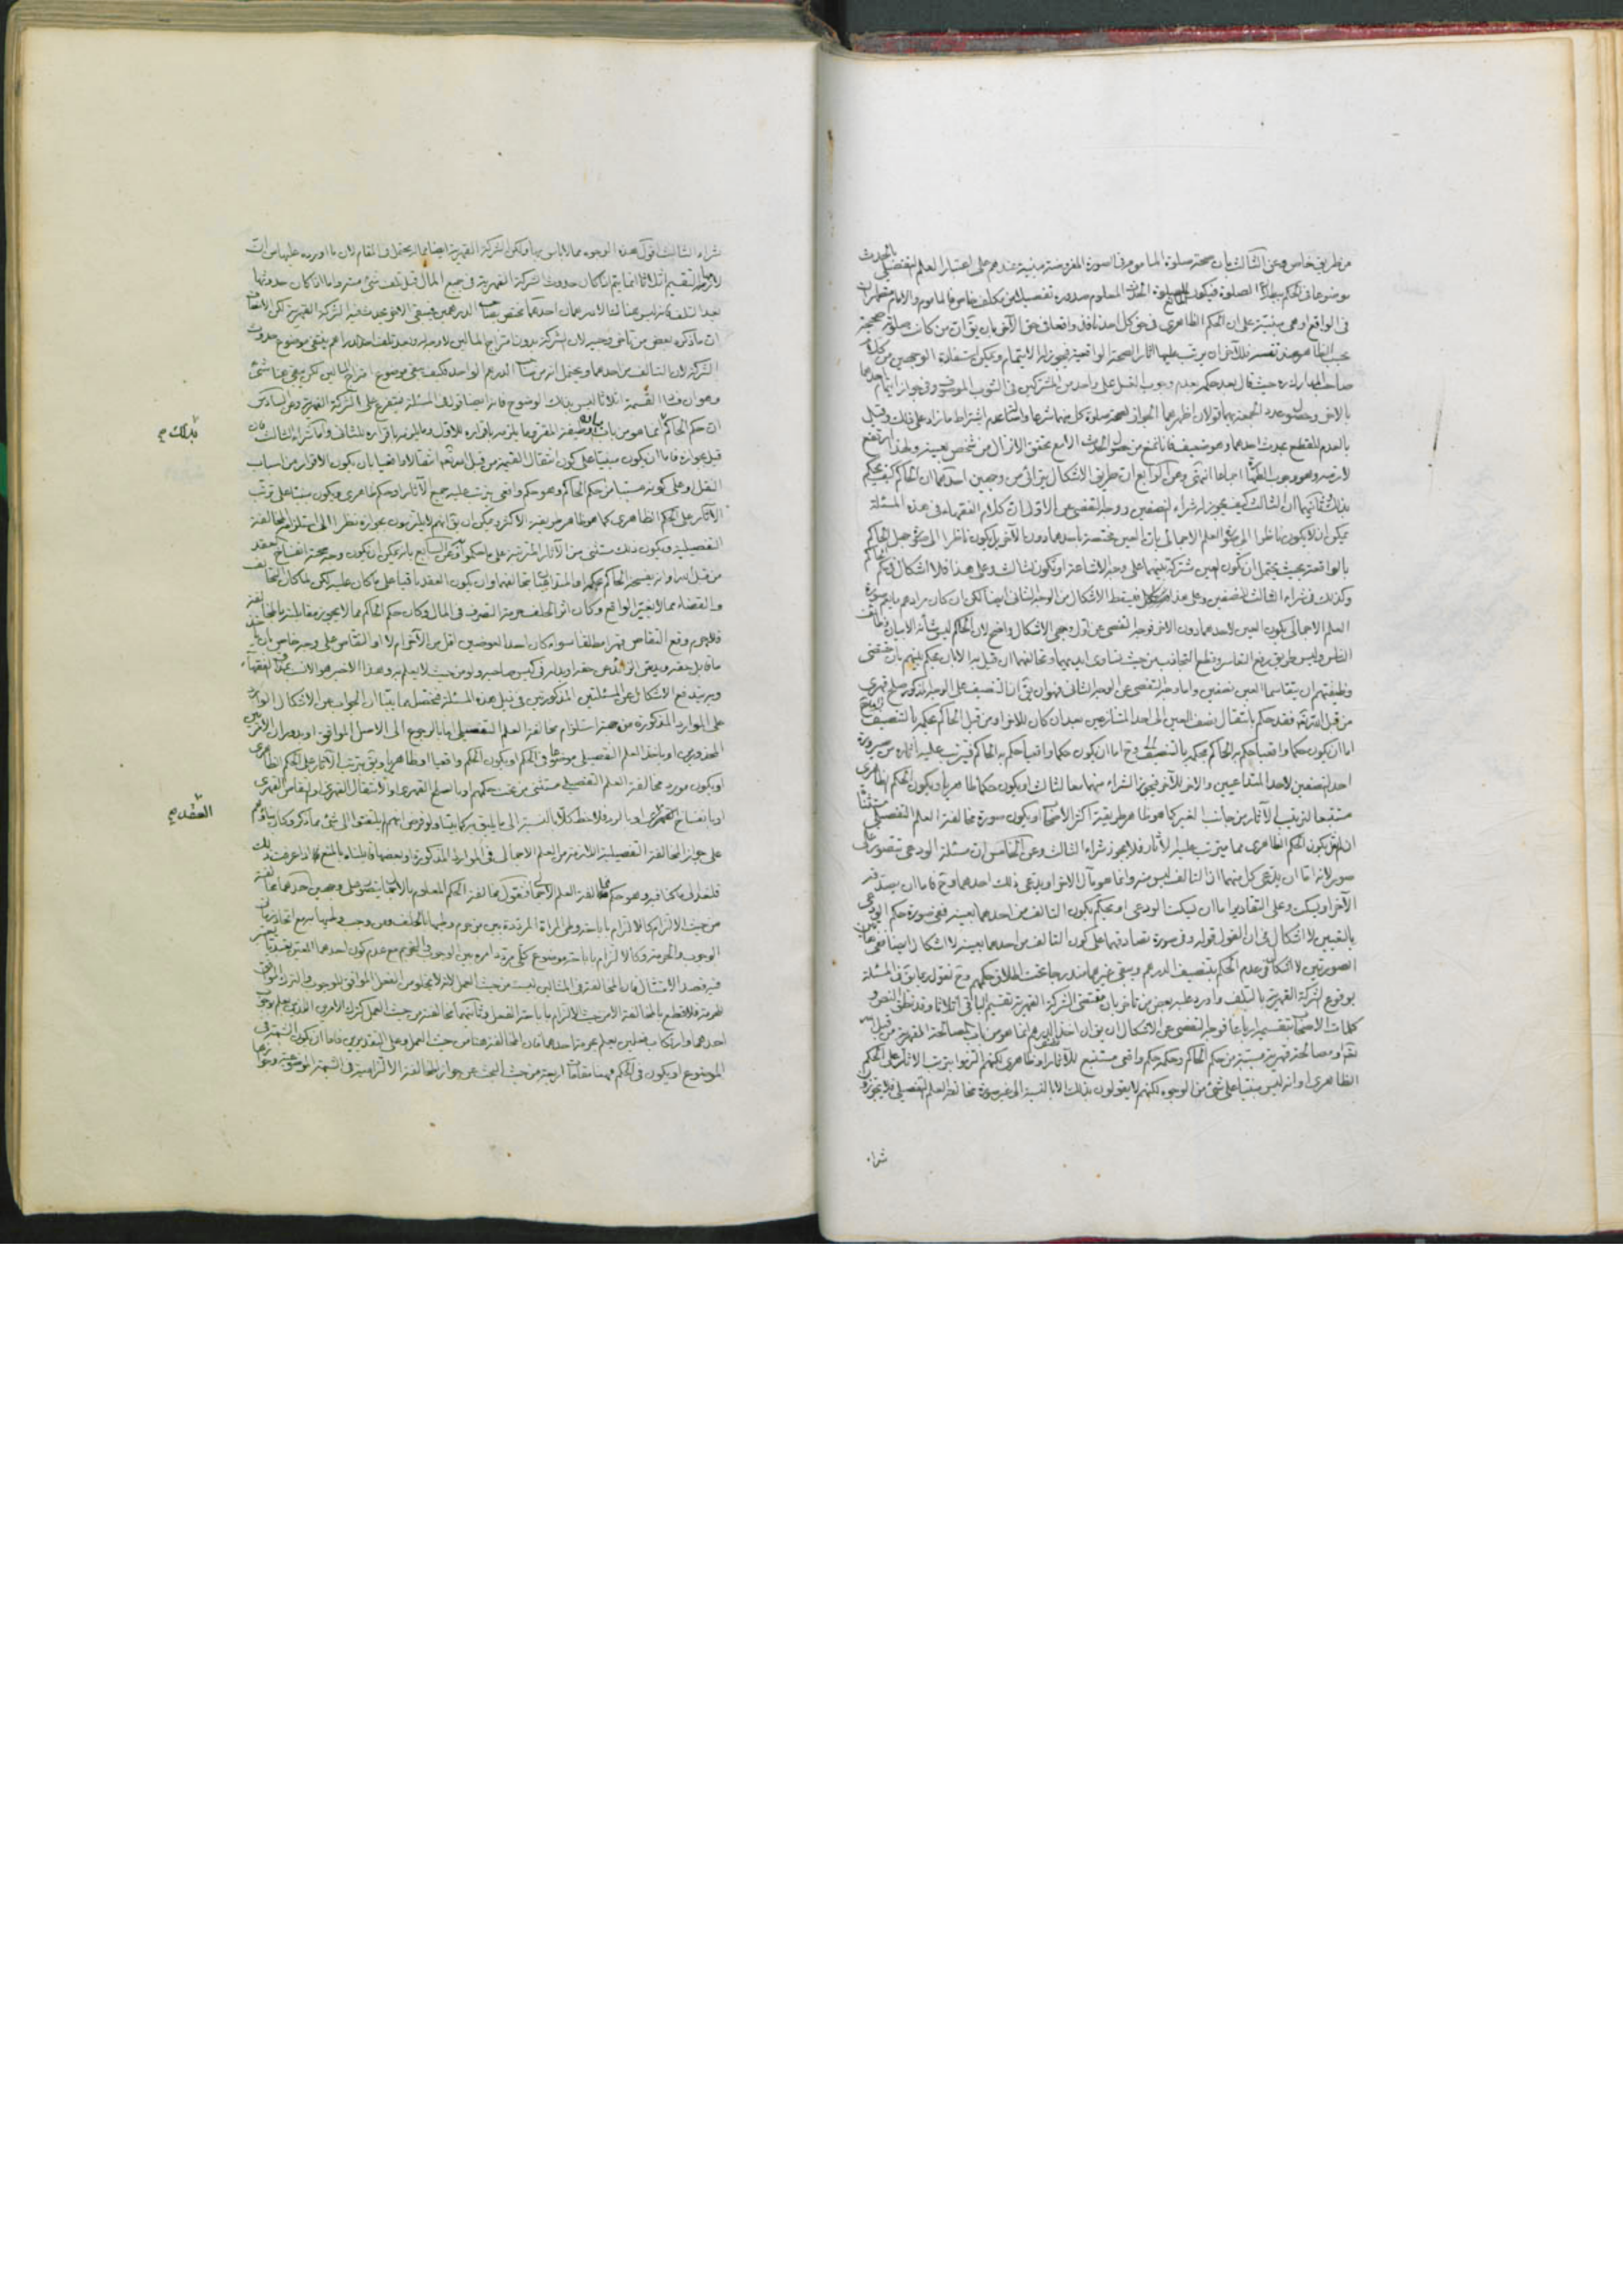 من طريق خاص وعن الثالث بان صحة صلوة الماموم في الصورة المفروضة مبنية عندهم على اعتبار العلم التفصيلى بالحدث
موضوعا في الحكم ببطلان الصلوة فيكون المانع للصلوة الحدث المعلوم صدوره تفصيلا من مكلف خاص فالماموم والامام متطهران
في الواقع او هى مبنية على ان الحكم الظاهرى في حق كل احد نافذ واقعا في حق الآخر بان يق ان من كانت صلوته صحيحة
بحسب الظاهر عند نفسه فللآخر ان يرتب عليها اثار الصحة الواقعية فيجوز له الايتمام ويمكن استفادة الوجهين من كلام
صاحب المدارك ره حيث قال بعد حكمه بعدم وجوب الغسل على واحد من المشتركين في الثوب الموصوف وفي جواز ايتمام احدهما
بالاخر وحصول عدد الجمعة بهما قولان اظهرهما الجواز لصحة صلوة كل منهما شرعا واصالة عدم اشتراط ما زاد على ذلك وقيل
بالعدم للقطع بحدث احدهما وهو ضعيف فانا نمنع من حصول الحدث الا مع تحقق الانزال من شخص بعينه ولهذا ارتفع
لازمه وهو وجوب الطهارة اجماعا انتهى وعن الرابع ان طريق الاشكال يترائى من وجهين احدهما ان الحاكم كيف يحكم
بذلك ثانيهما ان الثالث كيف يجوز له شراء النصفين ووجه التفصى عن الاول ان كلام الفقهاء في هذه المسئلة
يمكن ان لا يكون ناظرا الى صورة العلم الاجمالى بان العين مختصة باحدهما دون الآخر بل يكون ناظرا الى صورة جهل الحاكم
بالواقعة بحيث يحتمل ان تكون العين مشتركة بينهما على وجه الاشاعة او يكون لثالث وعلى هذا فلا اشكال في حكم الحاكم
وكذلك في شراء الثالث للنصفين وعلى هذا فيسقط الاشكال من الوجه الثانى ايضا لكن ان كان مرادهم ما يعم صورة
العلم الاجمالى بكون العين لاحدهما دون الاخر فوجه التفصى عن اول وجهى الاشكال واضح لان الحاكم ليس شانه الا بيان وظائف
الناس وليس طريق رفع التشاجر وقطع التجاذب من حيث تساوى ايديهما وتحالفهما ان قيل به الا بان يحكم بينهم بان مقتضى
وظيفتهم ان يتقاسما العين نصفين واما وجه التفصى عن الوجه الثانى فهو ان يق ان التنصيف على الوجه المذكور صلح قهرى
من قبل الله تعم فقد حكم بانتقال نصف العين الى احد المتنازعين بعد ان كان للاخر او من قبل الحاكم بحكمه بالتنصيف
اما ان يكون حكما واقعيا حكم به الحاكم بحكمه بالتنصيف وح اما ان يكون حكما واقعيا حكم به الحاكم فيرتب عليه اثاره من صيرورة
احد النصفين لاحد المتداعيين والاخر للآخر فيجوز الشراء منهما معا لثالث او يكون حكما ظاهريا ويكون الحكم الظاهرى
مستتبعا لترتيب الآثار من جانب الغير كما هو ظاهر طريقة اكثر الاصحاب او يكون صورة مخالفة العلم التفصيلى مستثنا
صور لانه اما ان يدعى كل منهما ان التالف ليس منه وانما هو مال الاخر او يدعى ذلك احدهما وح فاما ان يصدقه
الآخر او يسكت وعلى التقادير اما ان يسكت الودعى او يحكم بكون التالف من احدهما بعينه ففى صورة حكم الودعى
بالتعيين لا اشكال في ان القول قوله وفي صورة تصادقهما على كون التالف من احدهما بعينه لا اشكال ايضا
الصورتين لا اشكال في عدم الحكم بتنصيف الدرهم ويبقى غيرهما مندرجا تحت اطلاق حكمهم وح نقول ربما يق في المسئلة
بوقوع الشركة القهرية بالتلف واورد عليه بعض من تاخر بان مقتضى الشركة القهرية تقسيم الباقى اثلاثا وقد نطق النص و
كلمات الاصحاب بتقسيمه ارباعا فوجه التفصى عن الاشكال ان يق ان اخذ نصف الدرهم انما هو من باب المصالحة القهرية من قبل الله
تعم او مصالحة قهرية مسببة من حكم الحاكم وحكمه حكم واقعى مستتبع للآثار او ظاهرى لكنهم التزموا بترتب الاثار على الحكم
الظاهرى او انه ليس مبنيا على شئ من الوجوه لكنهم لا يقولون بذلك الا بالنسبة الى غير صورة مخالفة العلم التفصيلى فلا يجوزون
شراء
شراء الثالث اقول هذه الوجوه مما لا باس بها ولكن الشركة القهرية ايضا مما يحتمل في المقام لان ما اورده عليها من ان
لازمها التقسيم اثلاثا انما يتم اذا كان حدوث الشركة القهرية في جميع المال قبل تلف شئ منه واما اذا كان حدوثها
بعد التلف فانه ليس هناك الا درهمان احدهما مختص بصاحب الدرهمين فيبقى الاخر يحدث فيه الشركة القهرية
ان ما ذكره بعض من تاخر وجيه لان الشركة بدون امتزاج المالين لا وجه له وبعد تلف احد الدراهم ينتفى موضوع حدوث
الشركة لان التالف من احدهما ويحتمل انه من صاحب الدرهم الواحد فكيف يبقى موضوع امتزاج المالين لكن يبقى هنا شئ
وهو ان هذا القسمة اثلاثا ليس بذلك الوضوح فانه ايضا قول في المسئلة متفرع على الشركة القهرية وعن السادس
ان حكم الحاكم انما هو من باب بيان وظيفة المقر وما يلزمه باقراره للاول وما يلزمه باقراره للثانى واما شراء الثالث فان
قيل بجوازه فاما ان يكون مبنيا على كون انتقال القيمة من قبل الله تعم انتقالا واقعيا بان يكون الاقرار من اسباب
النقل وعلى كونه مسببا من حكم الحاكم وهو حكم واقعى يترتب عليه جميع الآثار او حكم ظاهرى ويكون مبنيا على ترتب
الآثار على الحكم الظاهرى كما هو ظاهر طريقة الاكثر ويمكن ان يق انهم لا يلتزمون بجوازه نظرا الى استلزامه المخالفة
التفصيلية ويكون ذلك مستثنى من الآثار المترتبة على ما حكموا به وعن السابع بانه يمكن ان يكون وجه صحته انفساخ العقد
من قبل الله او انه يفسخه الحاكم بحكمه او المتبايعان بتحالفهما وان يكون العقد باقيا على ما كان عليه لكن لما كان التحالف
والقضاء مما لا يغير الواقع وكان اثر الحلف حرمة التصرف في المال وكان حكم الحاكم مما لا يجوز مقابلته بالمخالفة
فلا جرم وقع التقاص قهرا مطلقا سواء كان احد العوضين اقل من الآخر ام لا او التقاص على وجه خاص بان ياخذ
ما قابل حقه ويبقى الزائد عن حقه او يدله في كيس صاحبه ولو من حيث لا يعلم به وهذا الاخير هو الانسب بمذاق الفقهاء
وبه يندفع الاشكال عن المسئلتين المذكورتين في ذيل هذه المسئلة فتحصل مما بينا ان الجواب عن الاشكال الوارد
على الموارد المذكورة من جهة استلزام مخالفة العلم التفصيلى اما بالرجوع الى الاصل الموافق او بدوران الامر بين
المحذورين او باخذ العلم التفصيلى موضوعا في الحكم او بكون الحكم واقعيا او ظاهريا ويق بترتب الآثار على الحكم الظاهرى
او بكون مورد مخالفة العلم التفصيلى مستثنى من تحت حكمهم او بالصلح القهرى والانتقال القهرى او التقاص القهرى
على جواز المخالفة التفصيلية اللازمة من العلم الاجمالى في الموارد المذكورة او بعضها قابلناه بالمنع اذا عرفت ذلك
فلنعد الى ما كنا فيه وهو حكم مخالفة العلم الاجمالى فنقول مخالفة الحكم المعلوم بالاجمال يتصور على وجهين احدهما مخالفته
من حيث الالتزام كالالتزام باباحة وطى المراة المرددة بين من حرم وطيها بالحلف ومن وجب وطيها به مع اتحاد زمانى
الوجوب والحرمة وكالالتزام باباحة موضوع كلى مردد امره بين الوجوب والتحريم مع عدم كون احدهما المعين تعبديا
فيه قصد الامتثال فان المخالفة في المثالين ليست من حيث العمل لانه لا يخلو من الفعل الموافق للوجوب والترك الموافق
للحرمة فلا قطع بالمخالفة الا من حيث الالتزام باباحة الفعل وثانيهما مخالفته من حيث العمل كترك الامرين الذين يعلم بوجوب
احدهما وارتكاب فعلين يعلم بحرمة احدهما فان المخالفة هنا من حيث العمل وعلى التقديرين فاما ان يكون الشبهة في
الموضوع او يكون في الحكم فهنا مقامات اربعة من حيث البحث عن جواز المخالفة الالتزامية في الشبهة الموضوعية وجوازها